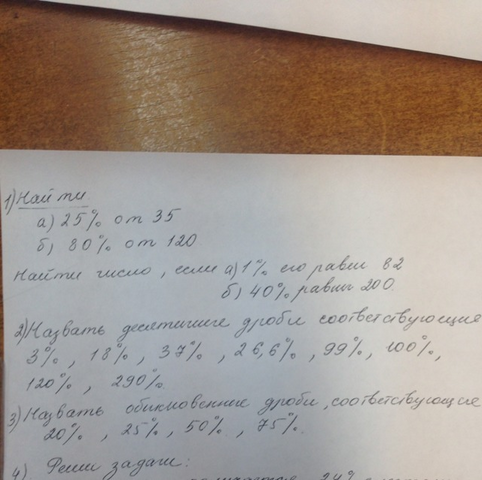 1) Найти
а) 25% от 35
б) 80% от 120
Найти число, если а) 1% его равен 82
б) 40% равны 200.
2) Назвать десятичные дроби соответствующие
3%, 18%, 37%, 26,6%, 99%, 100%,
120%, 290%.
3) Назвать обикновенние дроби, соответствующие
20%, 25%, 50%, 75%.
4) Реши задачи:
24%